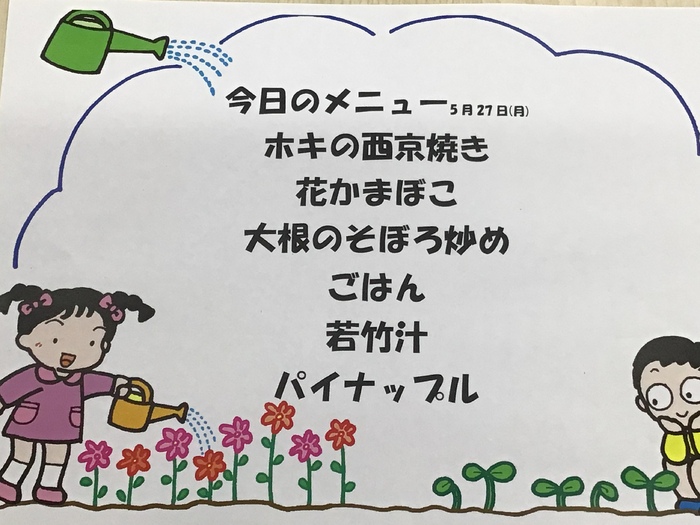 今日のメニュー5月27日(月)
ホキの西京焼き
花かまぼこ
大根のそぼろ炒め
ごはん
若竹汁
パイナップル